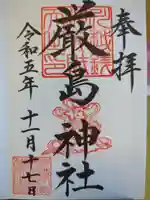 奉拝
厳島神社
令和五年 十一月十七日